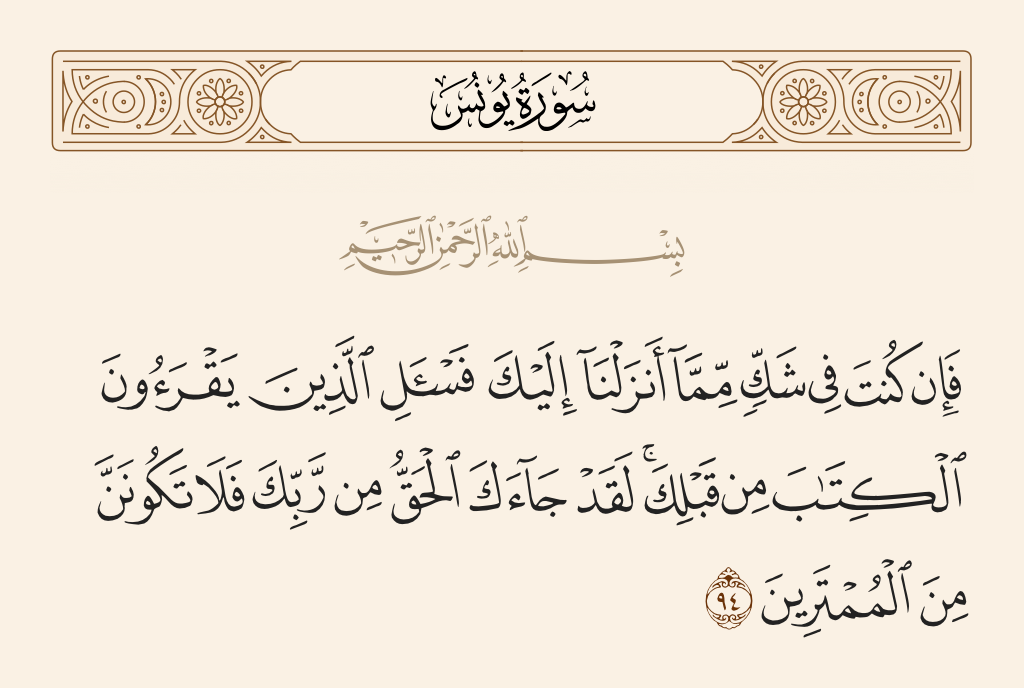 سُورَةُ يُونُسَ
بِسْمِ ٱللَّهِ ٱلرَّحْمَٰنِ ٱلرَّحِيمِ
فَإِن كُنتَ فِى شَكٍّ مِّمَّآ أَنزَلْنَآ إِلَيْكَ فَسْـَٔلِ ٱلَّذِينَ يَقْرَءُونَ
ٱلْكِتَٰبَ مِن قَبْلِكَ ۚ لَقَدْ جَآءَكَ ٱلْحَقُّ مِن رَّبِّكَ فَلَا تَكُونَنَّ
مِنَ ٱلْمُمْتَرِينَ ٩٤